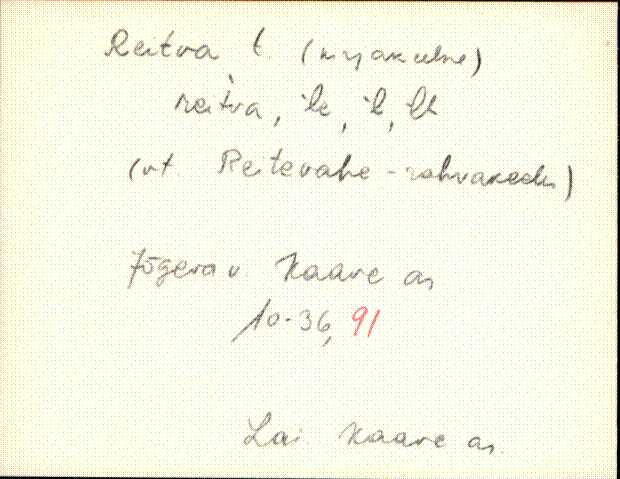 Reitva t. (kirjakeelne)
rèitva, `le, `l, `lt
(vt. Reitevahe - rahvakeeles)
Jõgeva v. Kaave as
10-36, 91
Lai. Kaave as.